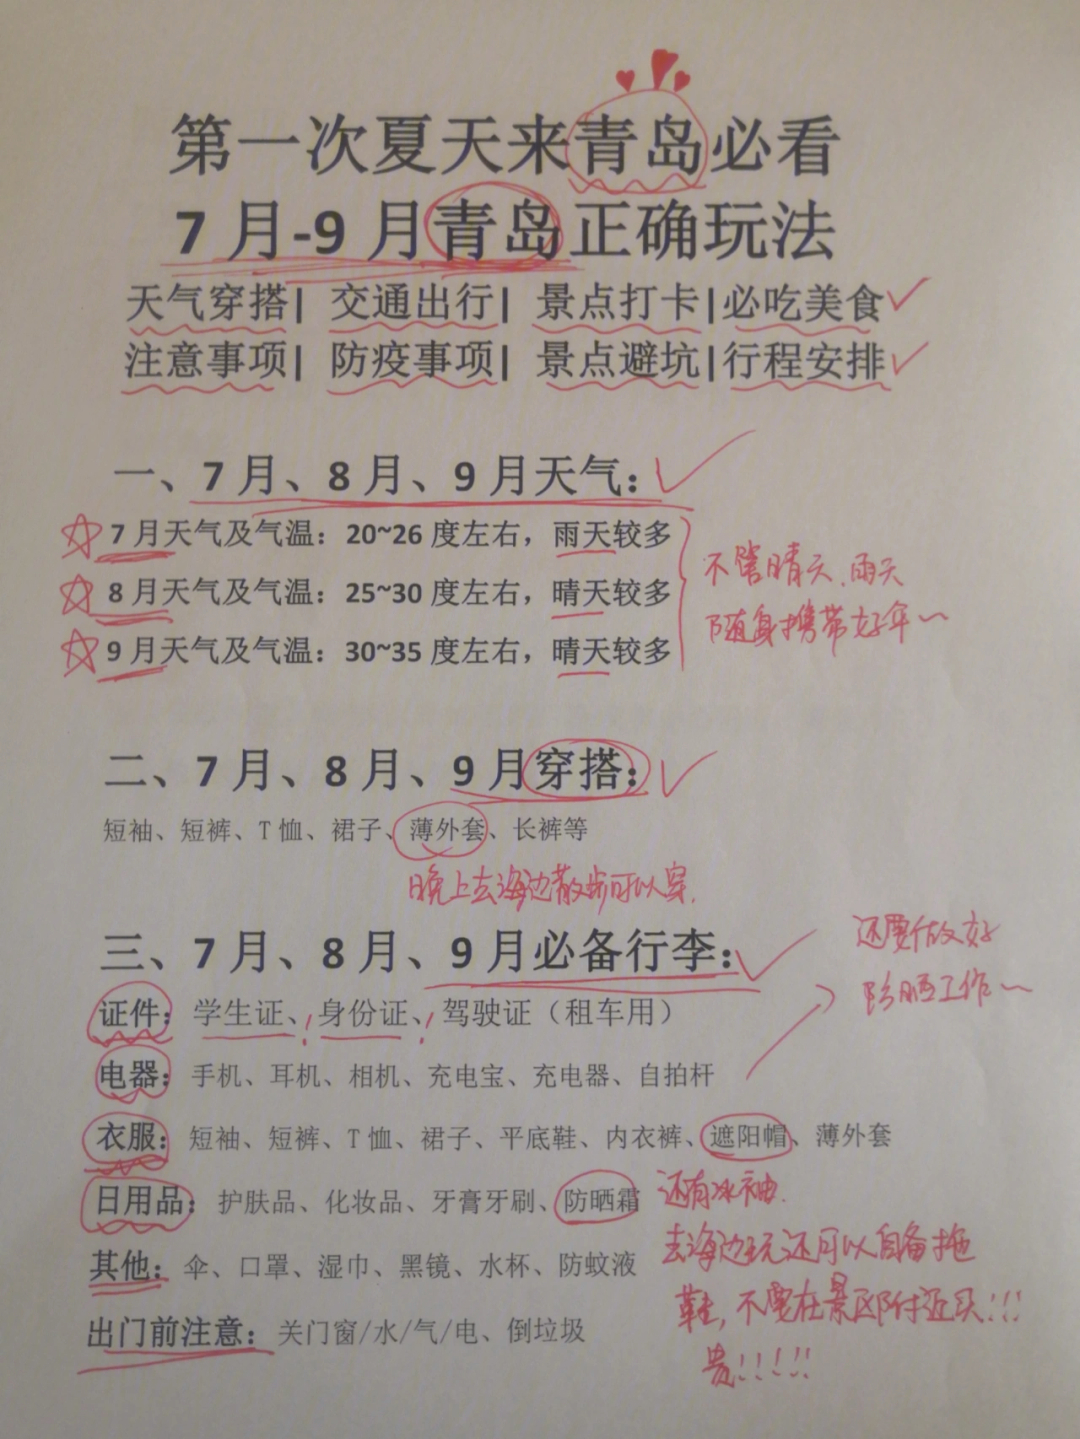 第一次夏天来青岛必看
7月-9月青岛正确玩法
天气穿搭| 交通出行| 景点打卡|必吃美食
注意事项| 防疫事项| 景点避坑|行程安排
一、7月、8月、9月天气：
7月天气及气温：20~26度左右，雨天较多
8月天气及气温：25~30度左右，晴天较多
9月天气及气温：30~35度左右，晴天较多
不管晴天、雨天
随身携带好伞～
二、7月、8月、9月穿搭：
短袖、短裤、T恤、裙子、薄外套、长裤等
晚上去海边散步可以穿.
三、7月、8月、9月必备行李：
还要做好
防晒工作～
证件：学生证、身份证、驾驶证（租车用）
电器：手机、耳机、相机、充电宝、充电器、自拍杆
衣服：短袖、短裤、T恤、裙子、平底鞋、内衣裤、遮阳帽、薄外套
日用品：护肤品、化妆品、牙膏牙刷、防晒霜
还有冰袖.
其他：伞、口罩、湿巾、黑镜、水杯、防蚊液
去海边玩还可以自备拖
鞋,不要在景区附近买!!!
贵!!!!!
出门前注意：关门窗/水/气/电、倒垃圾